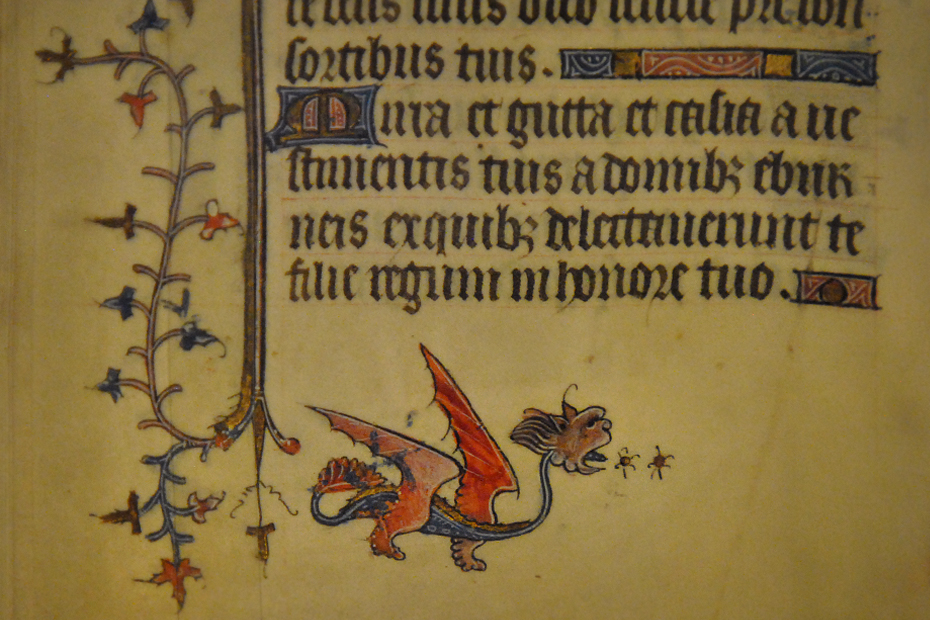 te deus tuus oleo pre con
sortibus tuis.
Mirra et gutta et casia a ve
stimentis tuis a domibꝫ ebur
neis exquibꝫ delectaverunt te
filie regum in honore tuo.